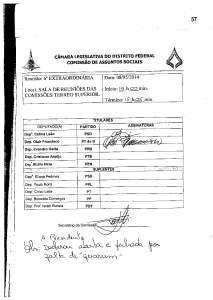 57
CÂMARA LEGISLATIVA DO DISTRITO FEDERAL
COMISSÃO DE ASSUNTOS SOCIAIS
Reunião: 6ª EXTRAORDINÁRIA
Data: 08/05/2014
Local: SALA DE REUNIÕES DAS
COMISSÕES TÉRREO SUPERIOR.
Início: 15 h
Término: 15 h
TITULARES
DEPUTADO(A) PARTIDO ASSINATURAS
Depª. Celina Leão
Dep. Olair Francisco PT do B
Dep. Evandro Garla PRB
Dep. Cristiano Araújo PTB
Depª. Arlete
SUPLENTES
Depª. Eliana Pedrosa
Dep. Paulo Roriz
Dep. Chico Leite PT
Dep. Benedito Domingos PP
Dep. Prof. Israel Batista
Secretário da Comissão
A Presidente
Obs: Declarou aberta e fechada por
falta de "quorum"